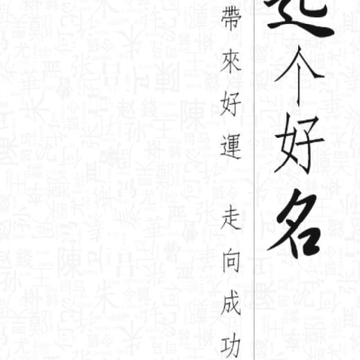 起个好名
帶來好運 走向成功